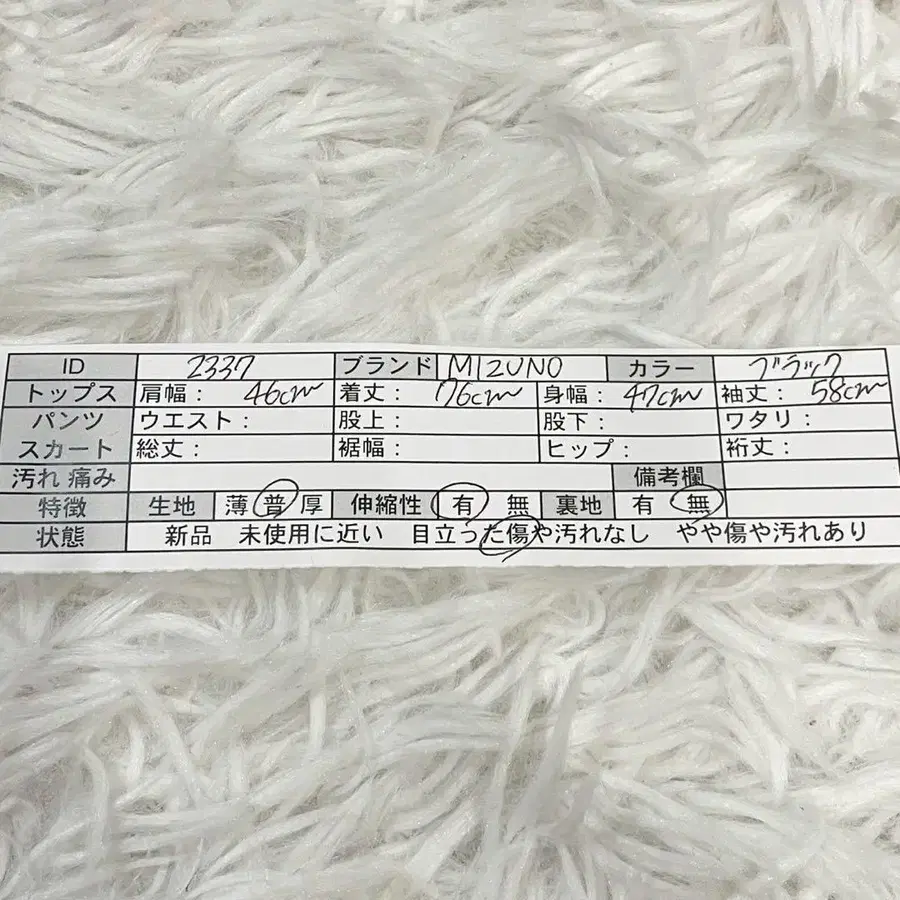 ID 2337 ブランド MIZUNO カラー ブラック
トップス 肩幅： 46cm 着丈： 76cm 身幅： 47cm 袖丈： 58cm
パンツ ウエスト： 股上： 股下： ワタリ：
スカート 総丈： 裾幅： ヒップ： 裄丈：
汚れ 痛み 備考欄
特徴 生地 薄 普 厚 伸縮性 有 無 裏地 有 無
状態 新品 未使用に近い 目立った傷や汚れなし やや傷や汚れあり